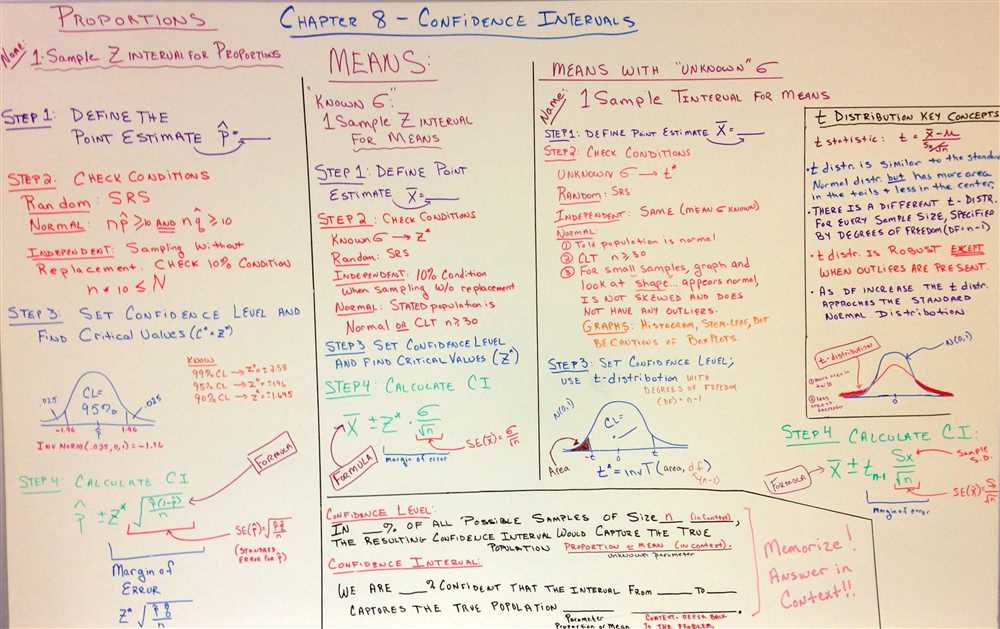 Chapter 8 - Confidence Intervals
Proportions
Name:
1-Sample Z Interval for Proportions
Step 1: Define the
Point Estimate p̂ = ___
Step 2: Check Conditions
Random: SRS
Normal: np̂ ≥ 10 and nq̂ ≥ 10
Independent: Sampling Without
Replacement. Check 10% Condition
n * 10 ≤ N
Step 3: Set Confidence Level and
Find Critical Values (C* = Z*)
Known
99% CL → Z* = ±2.58
95% CL → Z* = ±1.96
90% CL → Z* = ±1.645
CL =
95%
.025
.025
-1.96 0 1.96
Inv Norm(.025,0,1) = -1.96
Formula
Step 4: Calculate CI
p̂ ± Z* √(p̂(1-p̂)/n)
SE(p̂) = √(p̂q̂/n)
(Standard
Error for p̂)
Margin of
Error
Z* √(p̂q̂/n)
Means:
"Known σ":
1 Sample Z Interval
For Means
Step 1: Define Point
Estimate x̄ = ___
Step 2: Check Conditions
Known σ → Z*
Random: SRS
Independent: 10% Condition
When sampling w/o replacement
Normal: Stated population is
Normal or CLT n ≥ 30
Step 3 Set Confidence Level
and Find Critical Values (Z*)
Step 4 Calculate CI
x̄ ± Z* · σ/√n
SE(x̄) = σ/√n
Margin of error
Formula
Means with "Unknown" σ
Name:
1 Sample T Interval for Means
Step 1: Define Point Estimate x̄ = ___
Step 2: Check Conditions
Unknown σ → t*
Random: SRS
Independent: Same (Mean σ known)
Normal:
① Told population is normal
② CLT n ≥ 30
③ For small samples, graph and
look at "shape"... appears normal,
is not skewed and does
not have any outliers.
Graphs: Histogram, Stem-leaf, Dot
Be cautious of BoxPlots.
Step 3: Set Confidence Level;
use t-distribution with
degrees of freedom
(DF) = n-1
N(0,1)
CL =
Area
-t t
t* = invT(area, df)
n-1
t Distribution Key Concepts
t statistic: t = (x̄ - μ)/(Sx/√n)
• t distr. is similar to the standard
Normal distr. but has more area
in the tails & less in the center.
• There is a different t-distr.
for every sample size, specified
by degrees of freedom (DF = n-1)
• t distr. is robust except
when outliers are present.
• As DF increase the t distr.
approaches the standard
Normal Distribution
t-distribution
N(0,1)
0
Step 4 Calculate CI:
x̄ ± tn-1 Sx/√n
Sample
S.D.
SE(x̄) = S/√n
Formula
Margin of error
Confidence Level:
In ___% of all possible samples of size n (in context),
the resulting confidence interval would capture the true
population proportion or mean (in context).
unknown parameter
Confidence Interval:
We are ___% confident that the interval from ___ to ___
captures the true population ___ ___.
Parameter
Proportion or Mean
Context - refer back
to the problem.
Memorize!
Answer in
Context!!